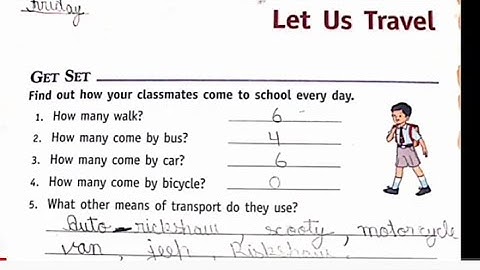 Friday
Let Us Travel
GET SET
Find out how your classmates come to school every day.
1. How many walk? 6
2. How many come by bus? 4
3. How many come by car? 6
4. How many come by bicycle? 0
5. What other means of transport do they use?
Auto-rickshaw, scooty, motorcycle
van, jeep, Rickshaw.